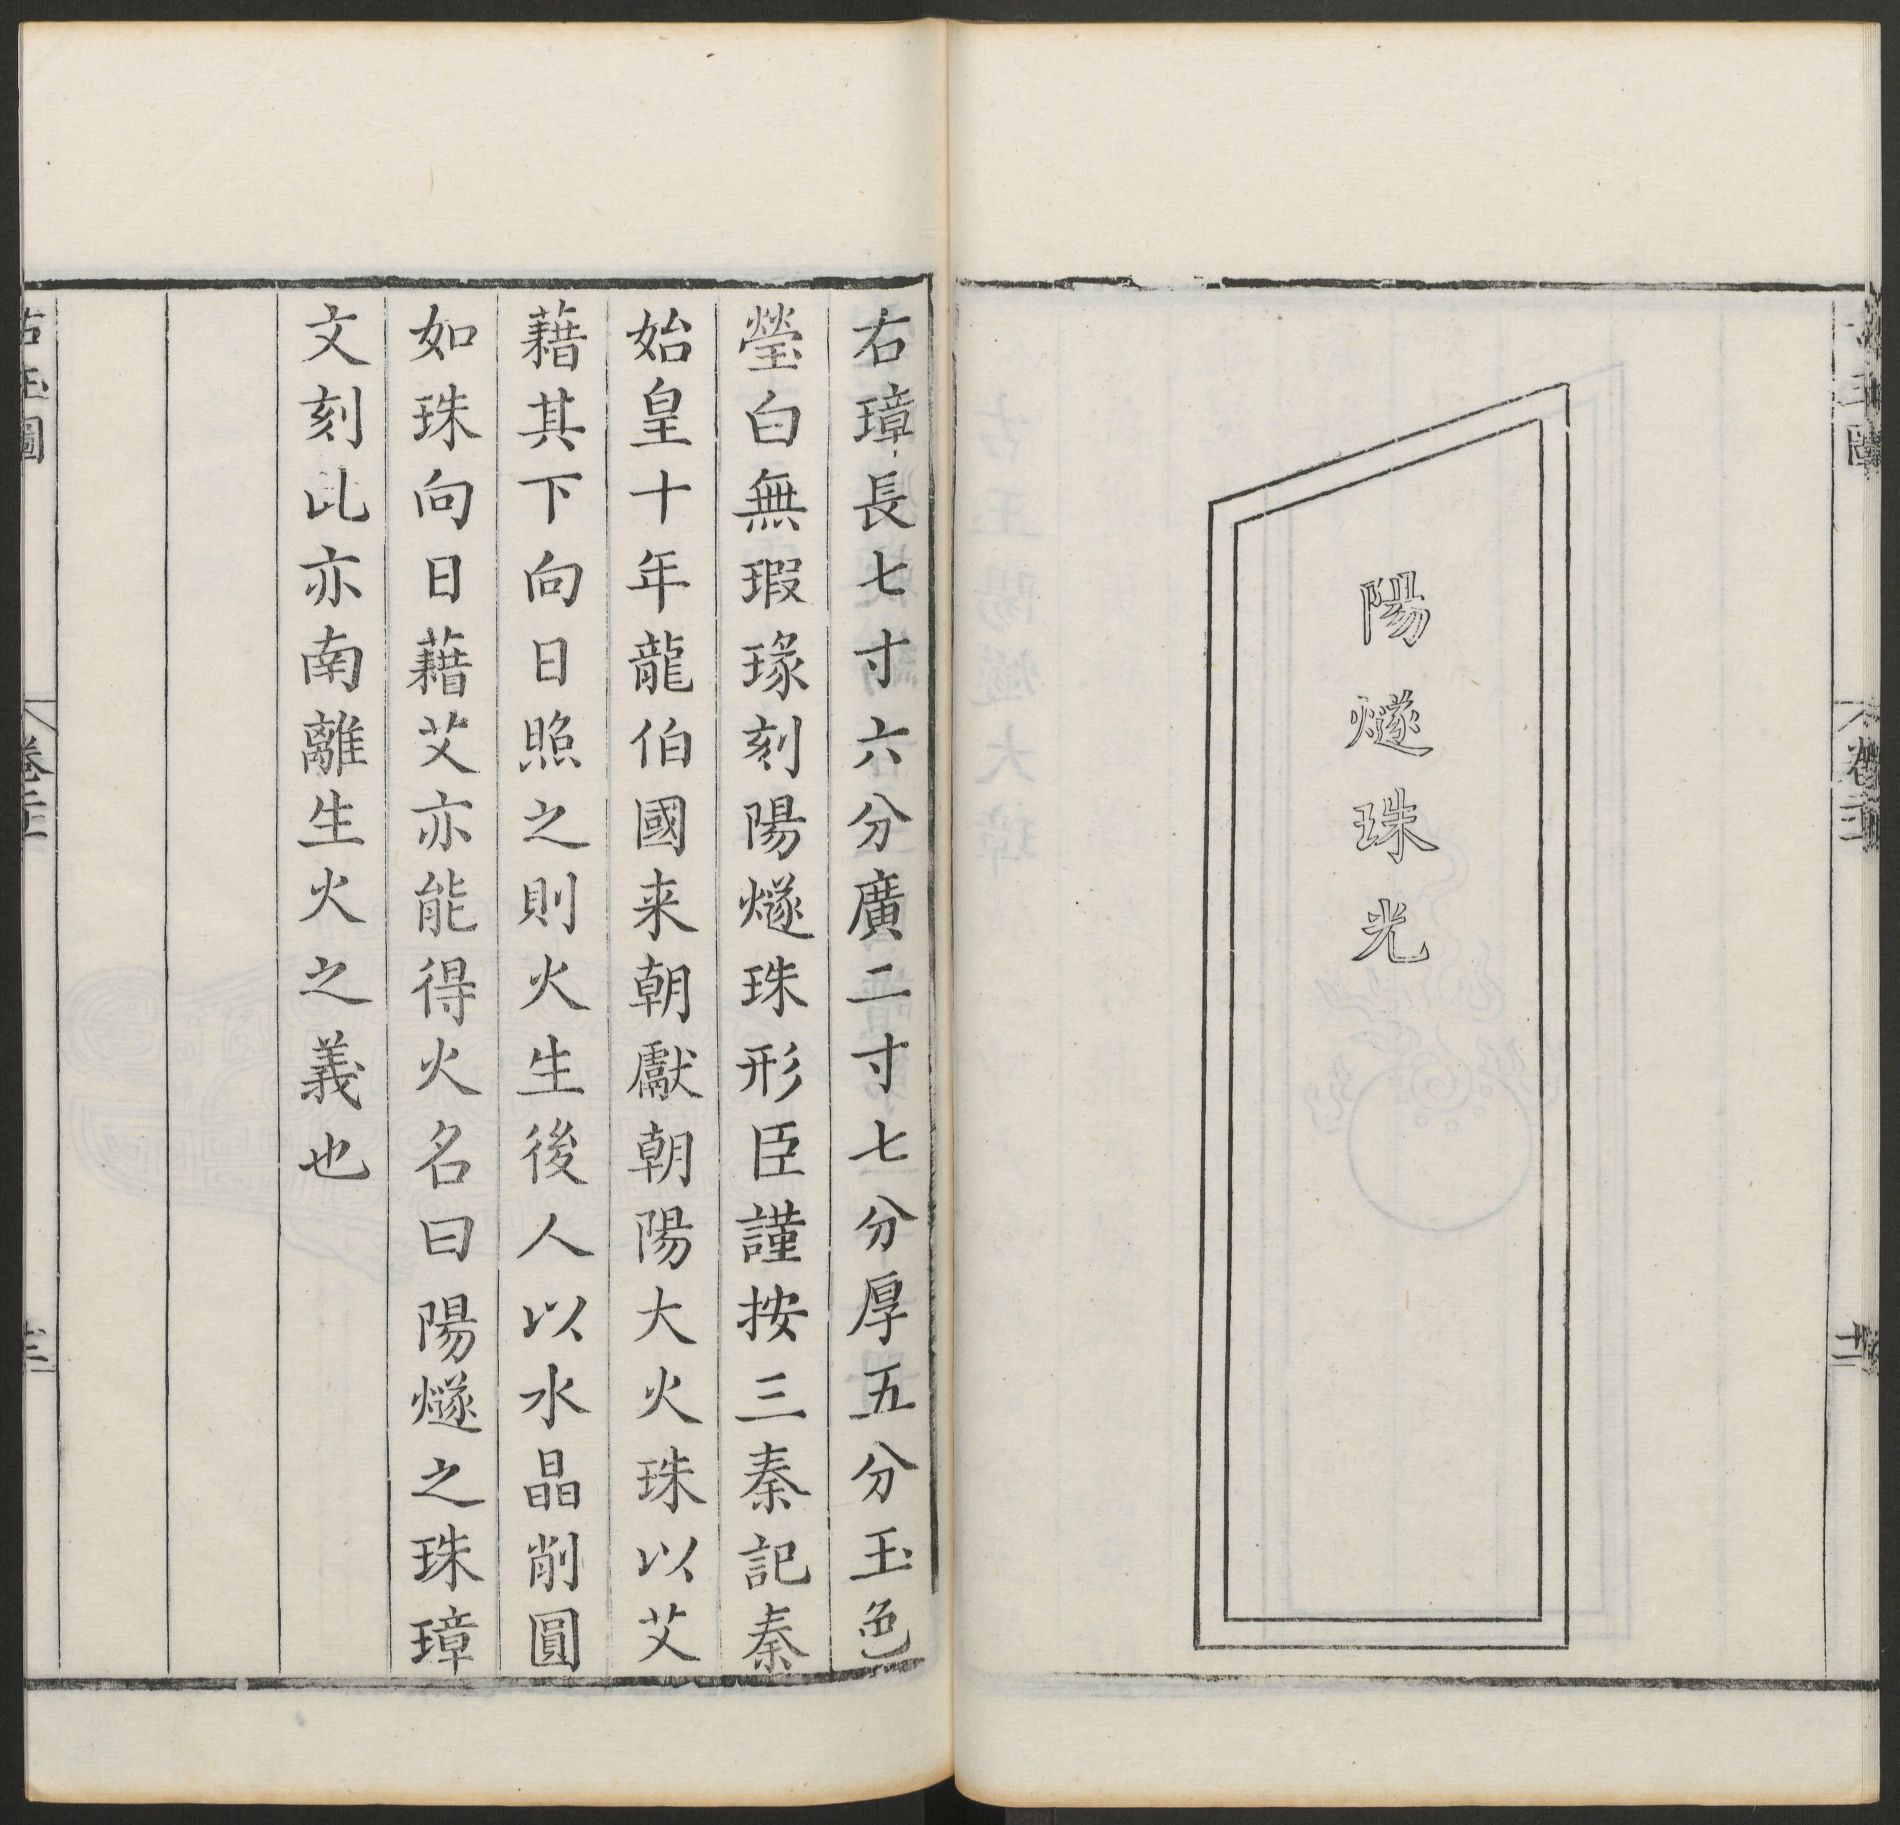 陽燧珠光
右璋長七寸六分廣二寸七分厚五分玉色
瑩白無瑕瑑刻陽燧珠形臣謹按三秦記秦
始皇十年龍伯國来朝獻朝陽大火珠以艾
藉其下向日照之則火生後人以水晶削圓
如珠向日藉艾亦能得火名曰陽燧之珠璋
文刻此亦南離生火之義也
古玉圖